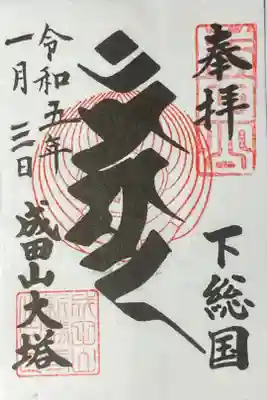 奉拝
下総国
令和五年
一月三日
成田山大塔